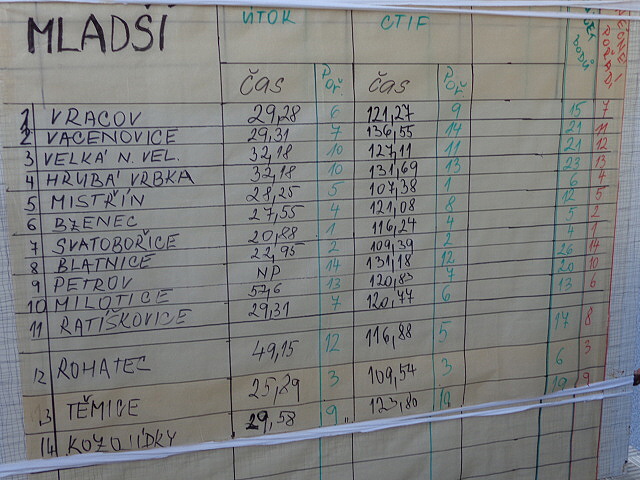 MLADŠÍ ÚTOK CTIF BODŮ POŘADÍ
ČAS POŘ. ČAS POŘ.
1 VRACOV 29,28 6 121,27 9 15 7
2 VACENOVICE 29,31 7 136,55 14 21 11
3 VELKÁ N. VEL. 32,18 10 127,11 11 21 12
4 HRUBÁ VRBKA 32,18 10 131,69 13 23 13
5 MISTŘÍN 28,25 5 107,38 1 6 4
6 BZENEC 27,55 4 121,08 8 12 5
7 SVATOBOŘICE 20,88 1 116,24 4 5 2
8 BLATNICE 22,95 2 109,39 2 4 1
9 PETROV NP 14 131,18 12 26 14
10 MILOTICE 57,6 13 120,83 7 20 10
11 RATÍŠKOVICE 29,31 7 120,77 6 13 6
12 ROHATEC 49,15 12 116,88 5 17 8
13 TĚMICE 25,89 3 109,54 3 6 3
14 KOZOJÍDKY 29,58 9 123,80 10 19 9